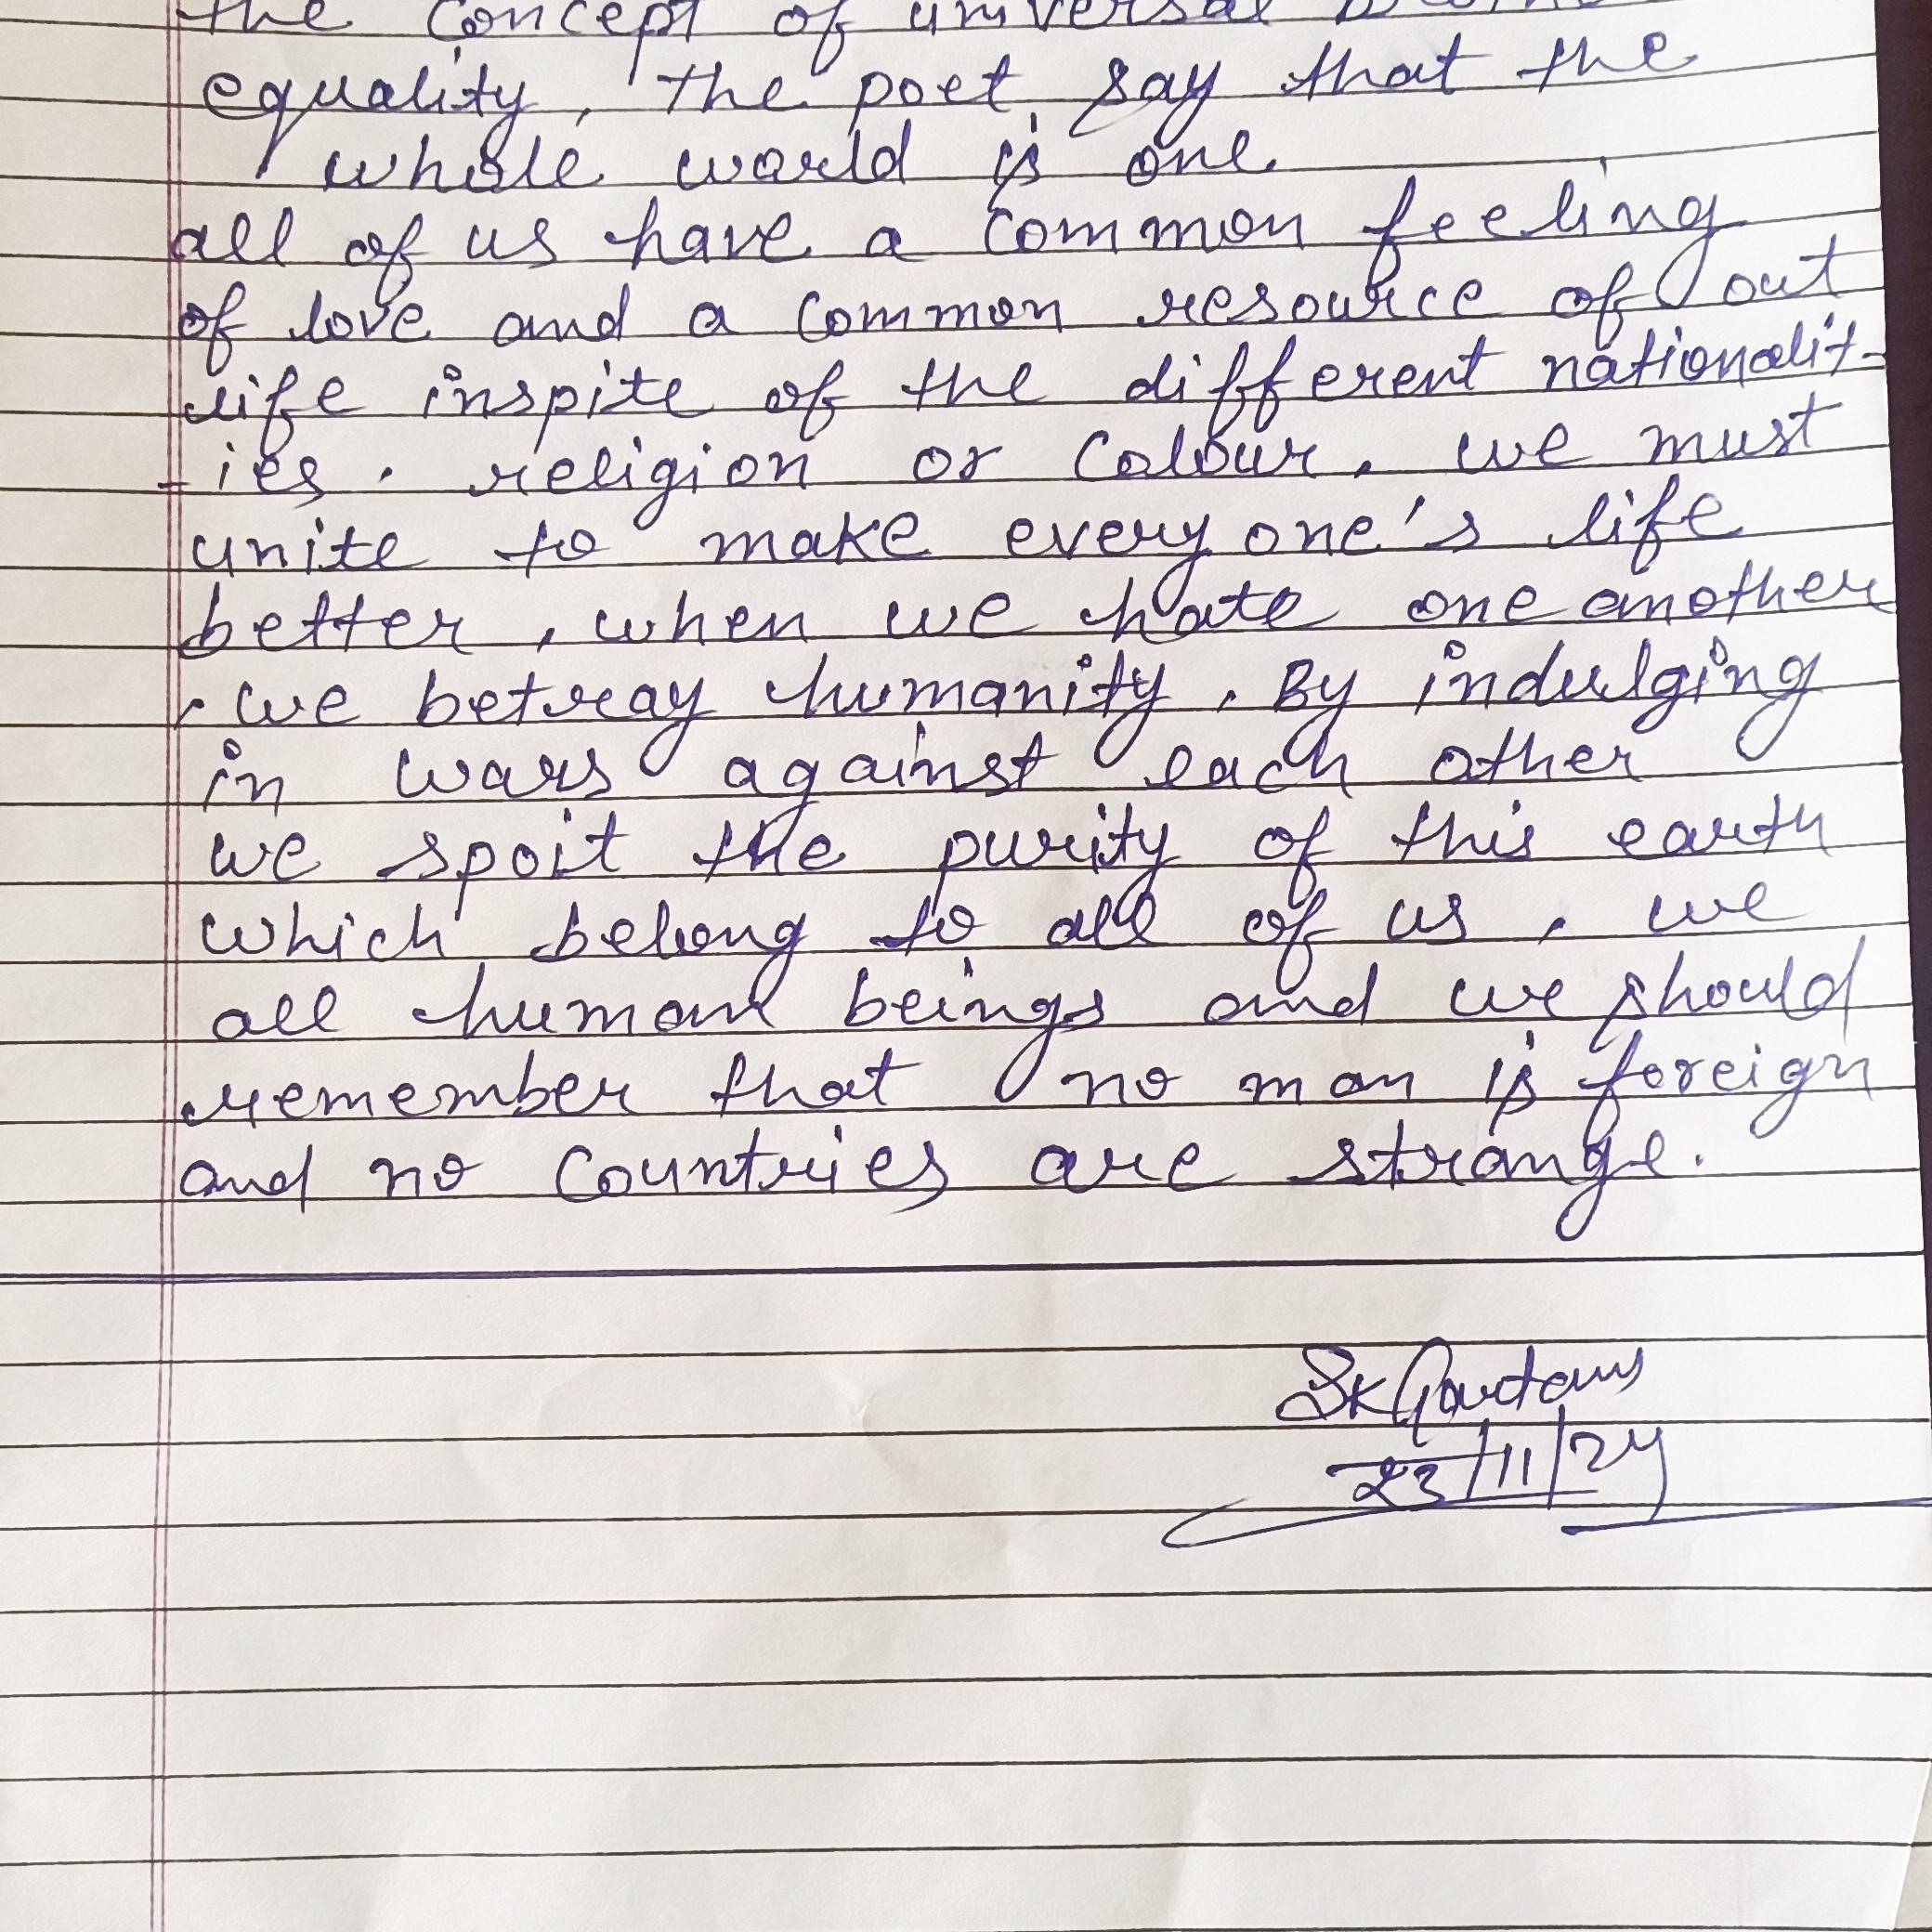 the concept of universal
equality, the poet say that the
whole world is one
all of us have a common feeling
of love and a common resource of out
life inspite of the different nationalit-
-ies. religion or colour. we must
unite to make everyone's life
better, when we hate one another
, we betray humanity. By indulging
in wars against each other
we spoit the purity of this earth
which belong to all of us, we
all human beings and we should
remember that no man is foreign
and no countries are strange.
SK Gautam
23/11/24